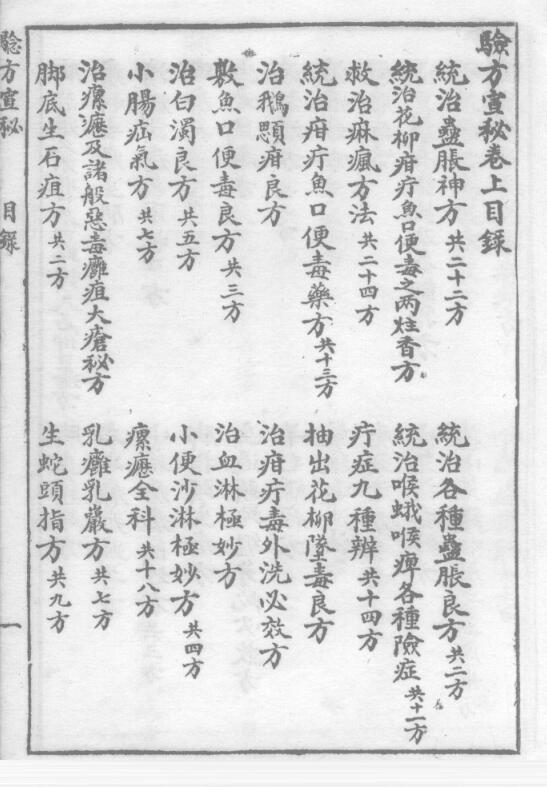 驗方宣秘卷上目錄
統治蠱脹神方 共二十二方
統治各種蠱脹良方 共二方
統治花柳疳疔魚口便毒之两炷香方
統治喉蛾喉痺各種險症 共十一方
救治麻瘋方法 共二十四方
疔症九種辨 共十四方
統治疳疔魚口便毒藥方 共十三方
抽出花柳墜毒良方
治鵝顋疳良方
治疳疔毒外洗必效方
敷魚口便毒良方 共三方
治血淋極妙方
治白濁良方 共五方
小便沙淋極妙方 共四方
小腸疝氣方 共七方
瘰癧全科 共十八方
治瘰癧及諸般惡毒癰疽大瘡秘方
乳癰乳巖方 共七方
脚底生石疽方 共二方
生蛇頭指方 共九方
驗方宣秘 目錄 一